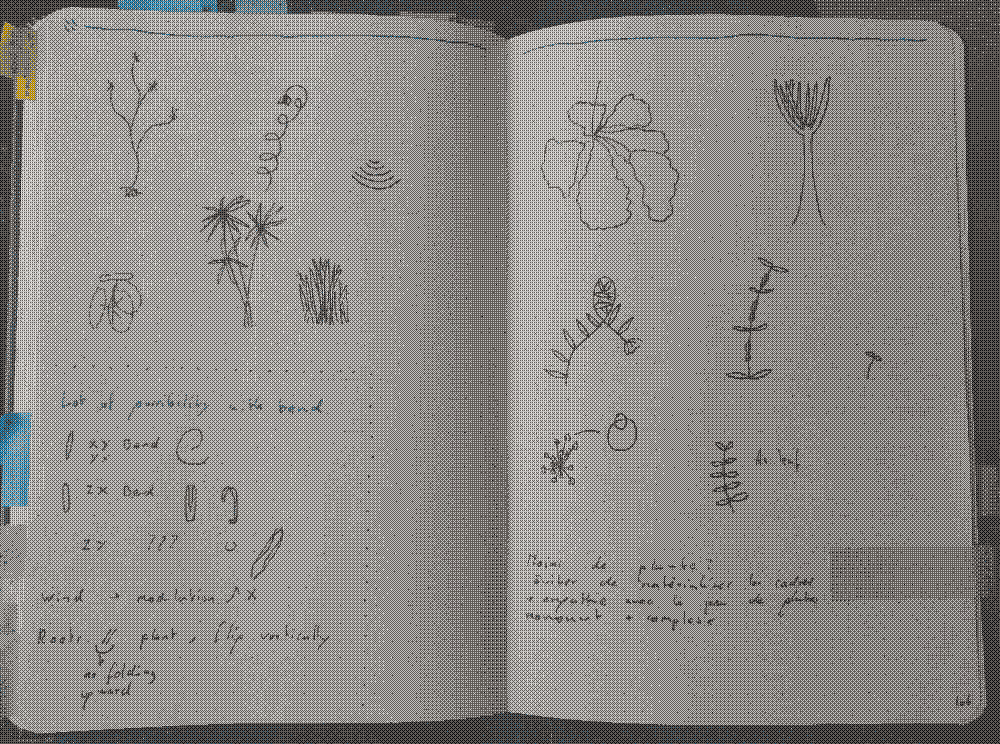 Lot of possibility with bend
xy Bend
yx
zx Bend
zy ???
Wind → modulation X
Roots plant, flip vertically
no folding
upward
As leaf
Moins de plante :
éviter de matérialiser les cadres
+ empathie avec le peu de plante
mouvement + complexe